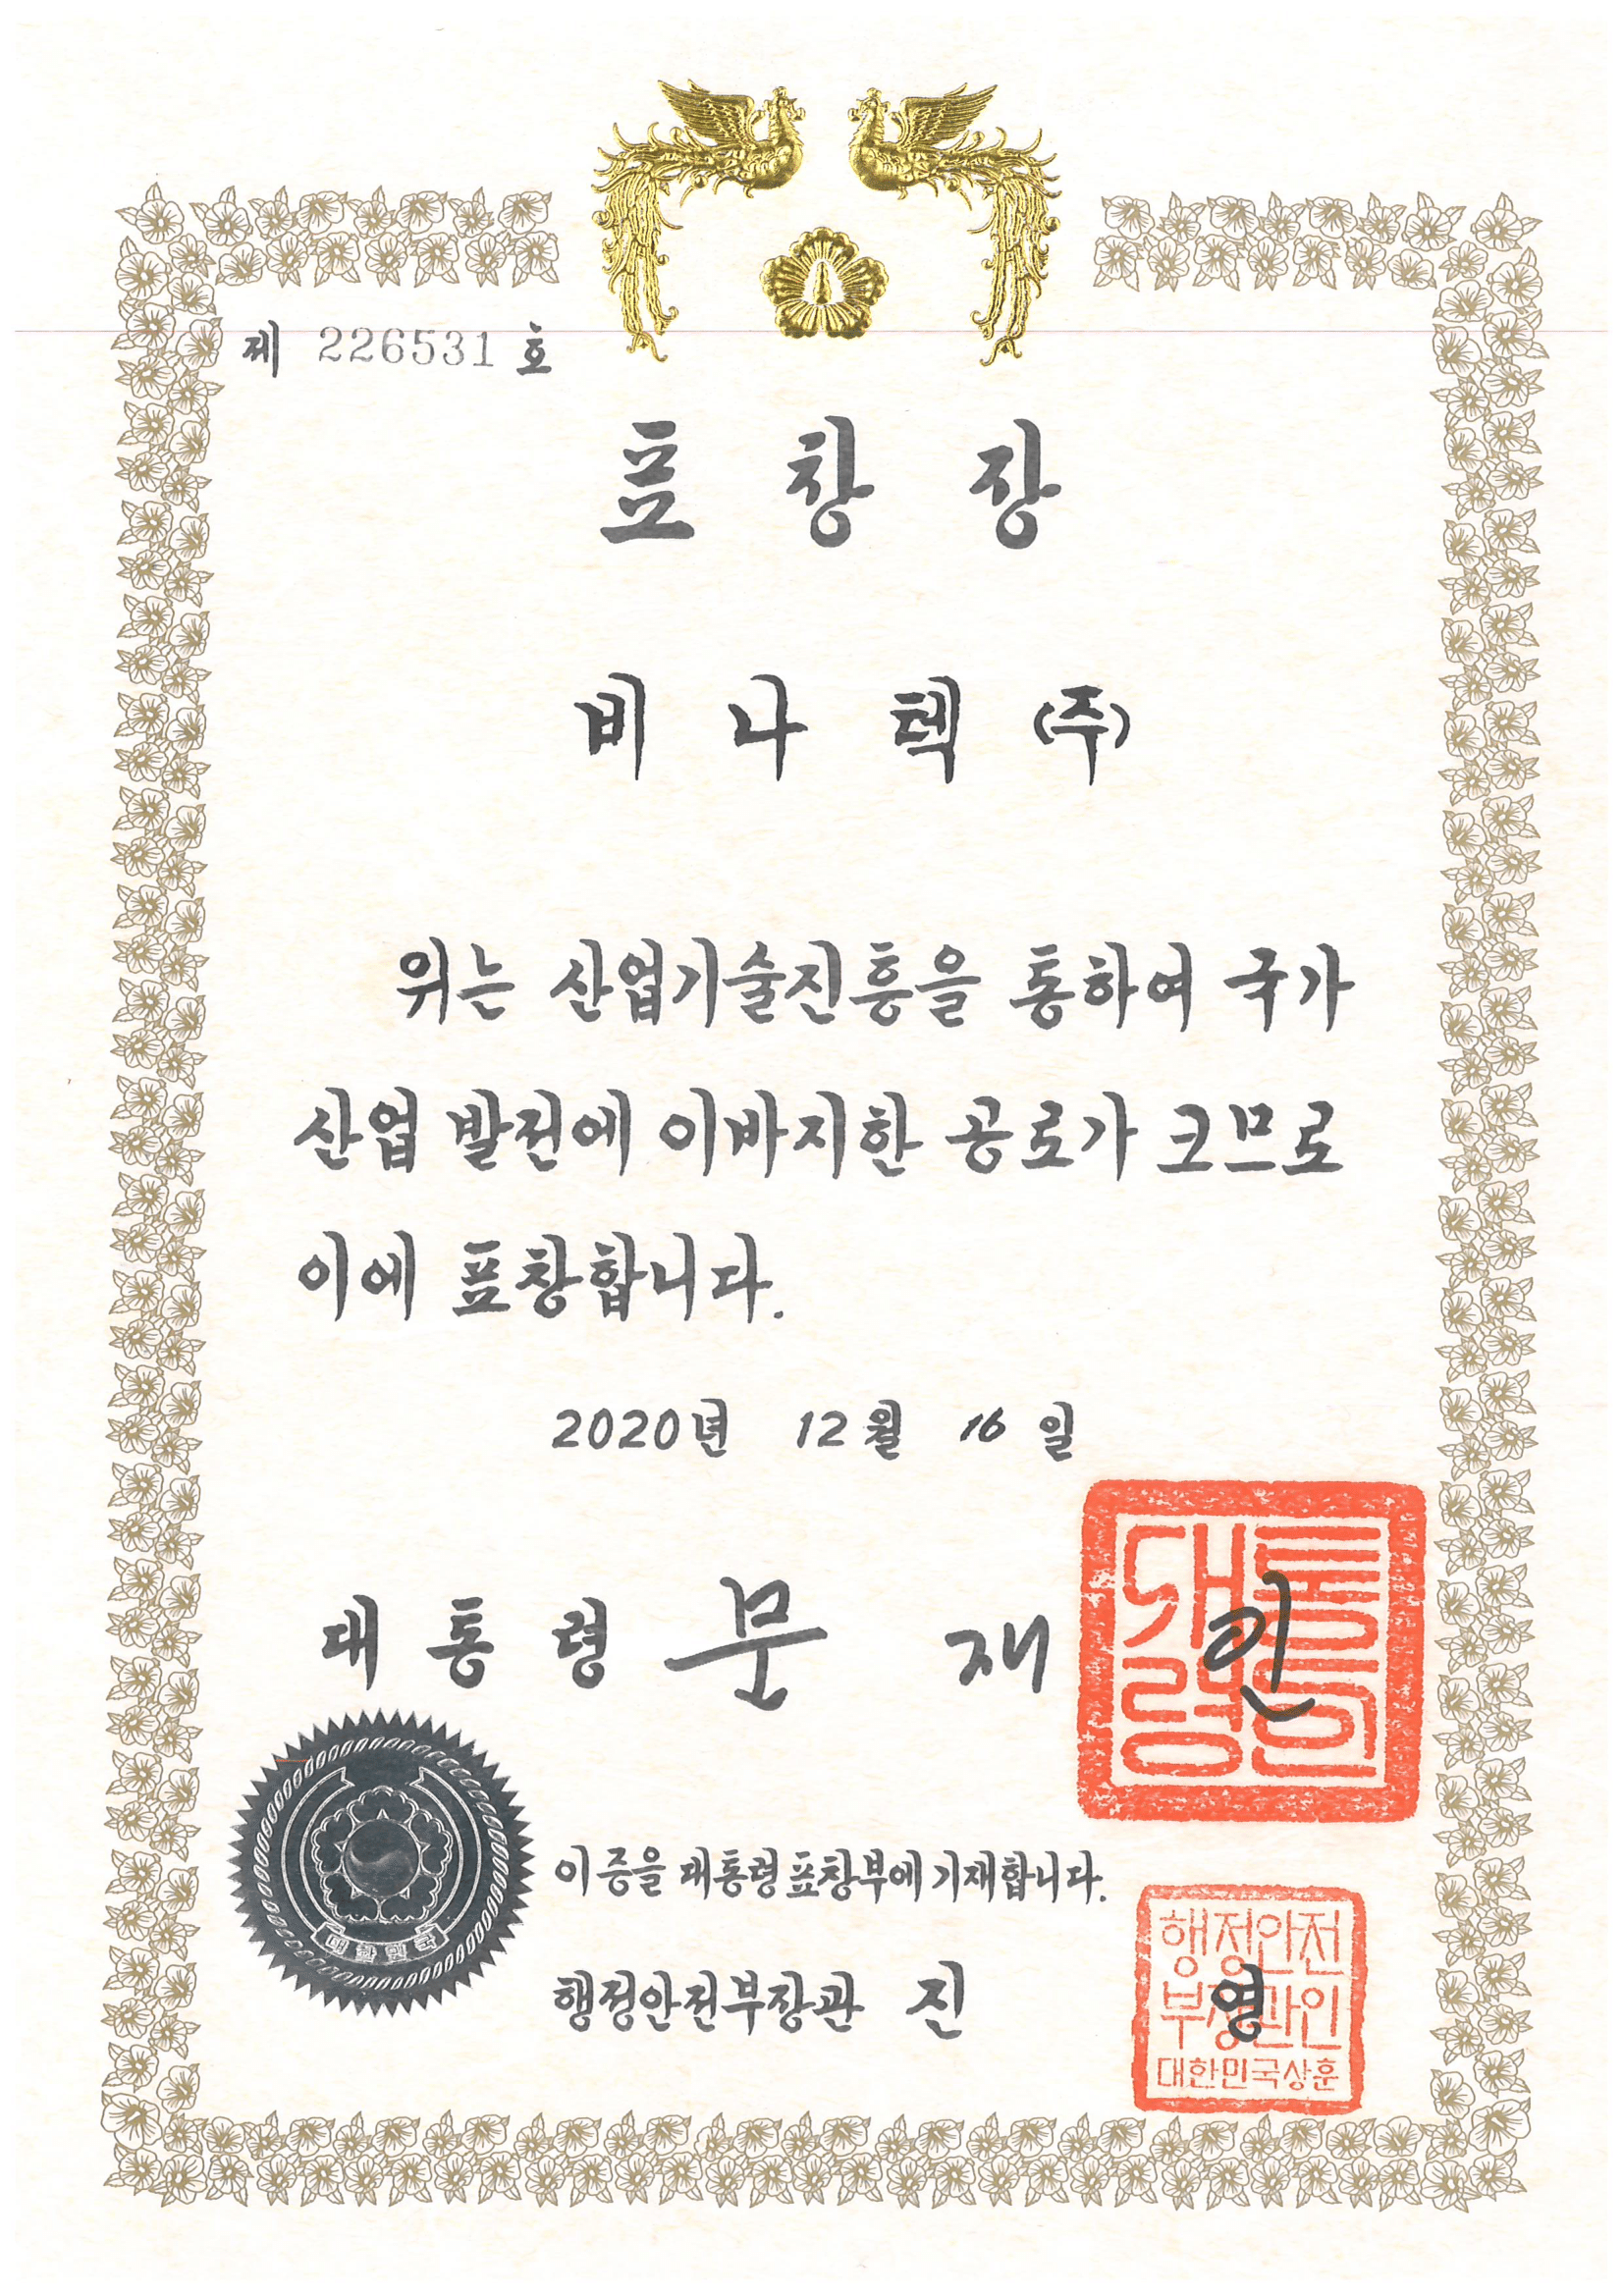 제 226531 호
표 창 장
비 나 텍 (주)
위는 산업기술진흥을 통하여 국가
산업 발전에 이바지한 공로가 크므로
이에 표창합니다.
2020년 12월 16일
대 통 령 문 재 인
대통령인
이 증을 대통령표창부에 기재합니다.
대한민국
행정안전부장관 진 영
행정안전
부장관인
대한민국상훈